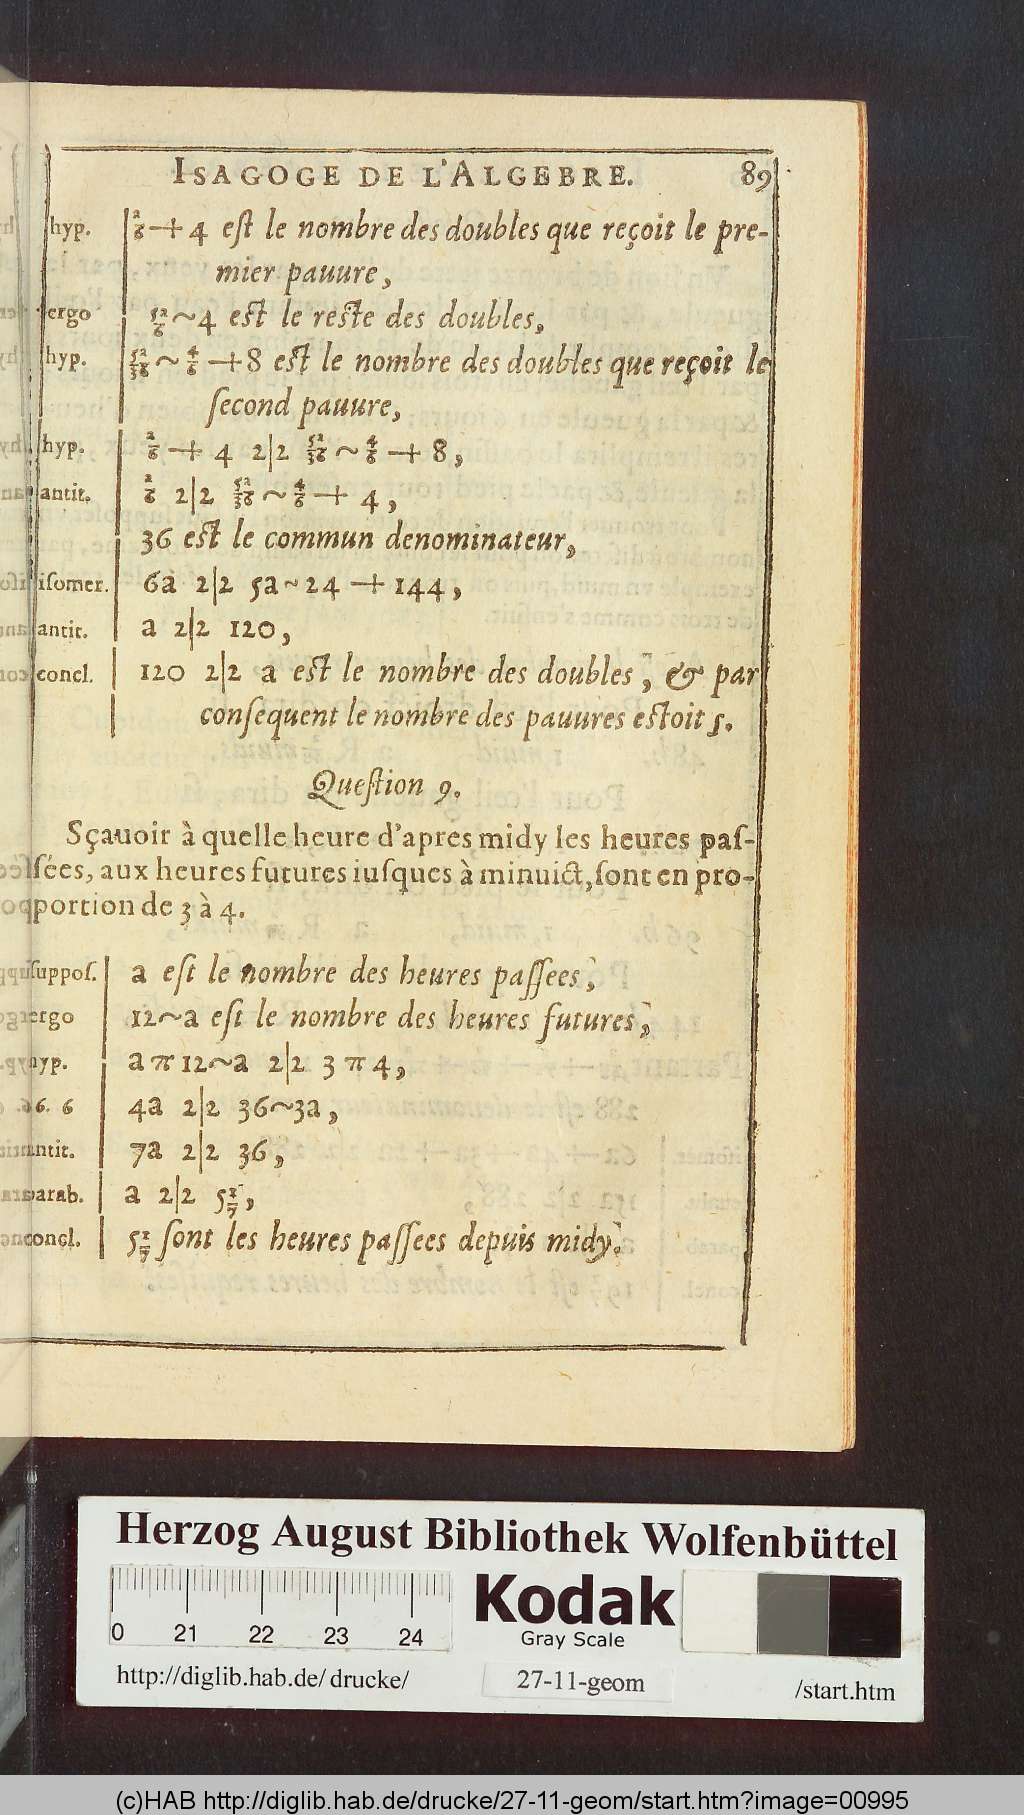 ISAGOGE DE L'ALGEBRE. 89
hyp. a/6 + 4 eſt le nombre des doubles que reçoit le pre-
mier pauure,
ergo 5a/6 ~ 4 eſt le reſte des doubles,
hyp. 5a/36 ~ 4/6 + 8 eſt le nombre des doubles que reçoit le
ſecond pauure,
hyp. a/6 + 4 2|2 5a/36 ~ 4/6 + 8,
antit. a/6 2|2 5a/36 ~ 4/6 + 4,
36 eſt le commun denominateur,
iſomer. 6a 2|2 5a ~ 24 + 144,
antit. a 2|2 120,
concl. 120 2|2 a eſt le nombre des doubles, & par
conſequent le nombre des pauures eſtoit 5.
Queſtion 9.
Sçauoir à quelle heure d'apres midy les heures paſ-
ſées, aux heures futures iuſques à minuict, ſont en pro-
portion de 3 à 4.
ſuppoſ. a eſt le nombre des heures paſſees,
ergo 12~a eſt le nombre des heures futures,
hyp. a π 12~a 2|2 3 π 4,
6. 6 4a 2|2 36~3a,
antit. 7a 2|2 36,
parab. a 2|2 5 1/7,
concl. 5 1/7 ſont les heures paſſees depuis midy.
Herzog August Bibliothek Wolfenbüttel
0 21 22 23 24
Kodak
Gray Scale
http://diglib.hab.de/drucke/ 27-11-geom /start.htm
(c)HAB http://diglib.hab.de/drucke/27-11-geom/start.htm?image=00995